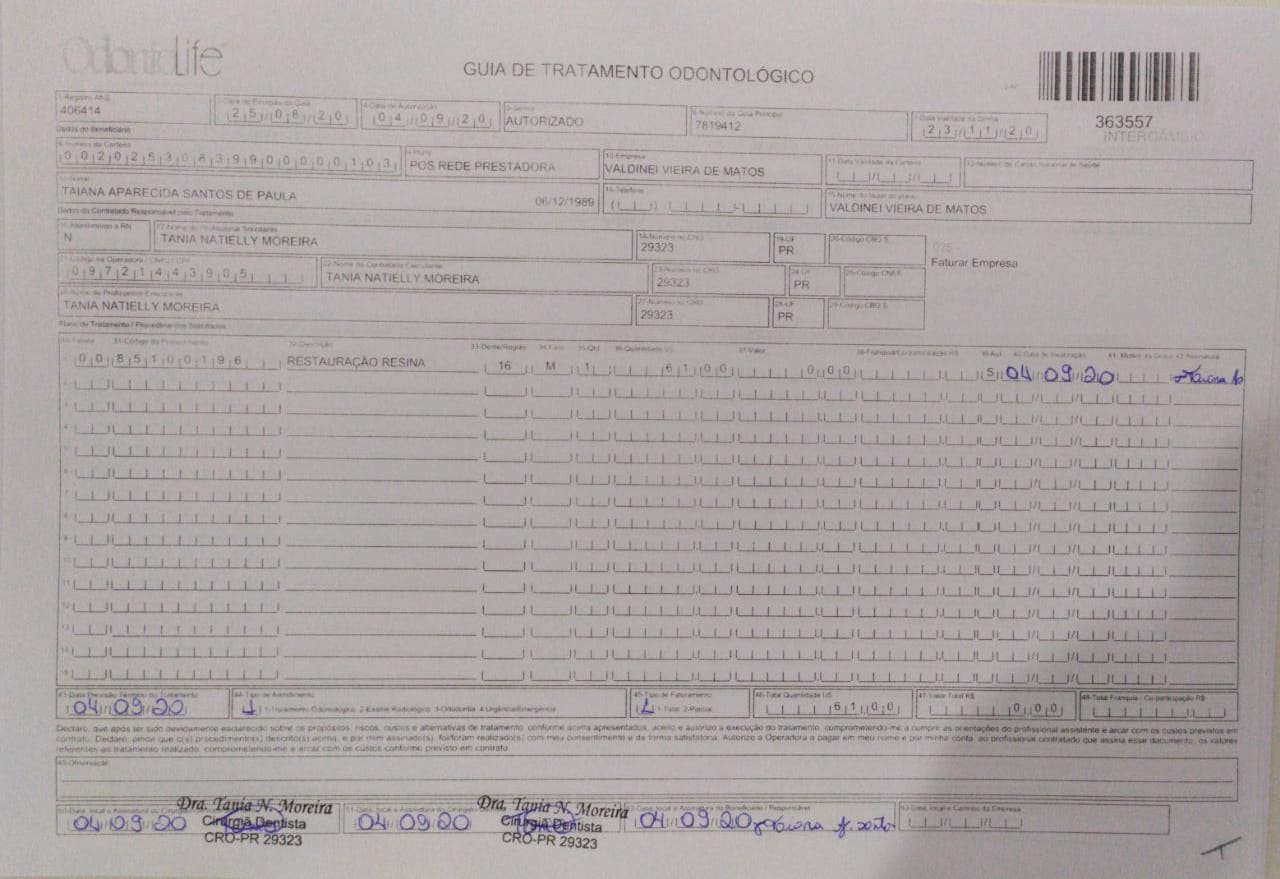 OdontoLife
GUIA DE TRATAMENTO ODONTOLÓGICO
363557
INTERCÂMBIO
1-Registro ANS
406414
3-Data de Emissão da Guia
25/08/20
4-Data de Autorização
04/09/20
5-Senha
AUTORIZADO
6-Número da Guia Principal
7819412
7-Data Validade da Senha
23/11/20
Dados do Beneficiário
8-Número da Carteira
9-Plano
POS REDE PRESTADORA
10-Empresa
VALDINEI VIEIRA DE MATOS
11-Data Validade da Carteira
12-Número do Cartão Nacional de Saúde
13-Nome
TAIANA APARECIDA SANTOS DE PAULA 06/12/1989
14-Telefone
15-Nome do titular do plano
VALDINEI VIEIRA DE MATOS
Dados do Contratado Responsável pelo Tratamento
16-Atendimento a RN
N
17-Nome do Profissional Solicitante
TANIA NATIELLY MOREIRA
18-Número no CRO
29323
19-UF
PR
20-Código CBO S
025
Faturar Empresa
21-Código na Operadora / CNPJ / CPF
09721443905
22-Nome do Contratado Executante
TANIA NATIELLY MOREIRA
23-Número no CRO
29323
24-UF
PR
25-Código CNES
26-Nome do Profissional Executante
TANIA NATIELLY MOREIRA
27-Número no CRO
29323
28-UF
PR
29-Código CBO S
Plano de Tratamento / Procedimentos Solicitados
30-Tabela 31-Código do Procedimento 32-Descrição 33-Dente/Região 34-Face 35-Qtd 36-Quantidade US 37-Valor 38-Franquia/Co-participação R$ 39-Aut 40-Data de Realização 41-Motivo da Glosa 42-Assinatura
00 85100196 RESTAURAÇÃO RESINA 16 M 1 61 00 0 00 S 04/09/20 Taiana
43-Data Previsão Término do Tratamento
04/09/20
44-Tipo de Atendimento
1 1-Tratamento Odontológico 2-Exame Radiológico 3-Ortodontia 4-Urgência/Emergência
45-Tipo de Faturamento
1 1-Total 2-Parcial
46-Total Quantidade US
61 00
47-Valor Total R$
0 00
48-Total Franquia / Co-participação R$
Declaro, que após ter sido devidamente esclarecido sobre os propósitos, riscos, custos e alternativas de tratamento, conforme acima apresentados, aceito e autorizo a execução do tratamento, comprometendo-me a cumprir as orientações do profissional assistente e arcar com os custos previstos em
contrato. Declaro, ainda que o(s) procedimento(s) descrito(s) acima, e por mim assinado(s), foi/foram realizado(s) com meu consentimento e de forma satisfatória. Autorizo a Operadora a pagar em meu nome e por minha conta, ao profissional contratado que assina esse documento, os valores
referentes ao tratamento realizado, comprometendo-me a arcar com os custos conforme previsto em contrato
49-Observação
04/09/20
Dra. Tania N. Moreira
Cirurgiã Dentista
CRO-PR 29323
04/09/20
Dra. Tania N. Moreira
Cirurgiã Dentista
CRO-PR 29323
52-Data, local e Assinatura do Beneficiário / Responsável
04/09/20 Taiana
53-Data, local e Carimbo da Empresa